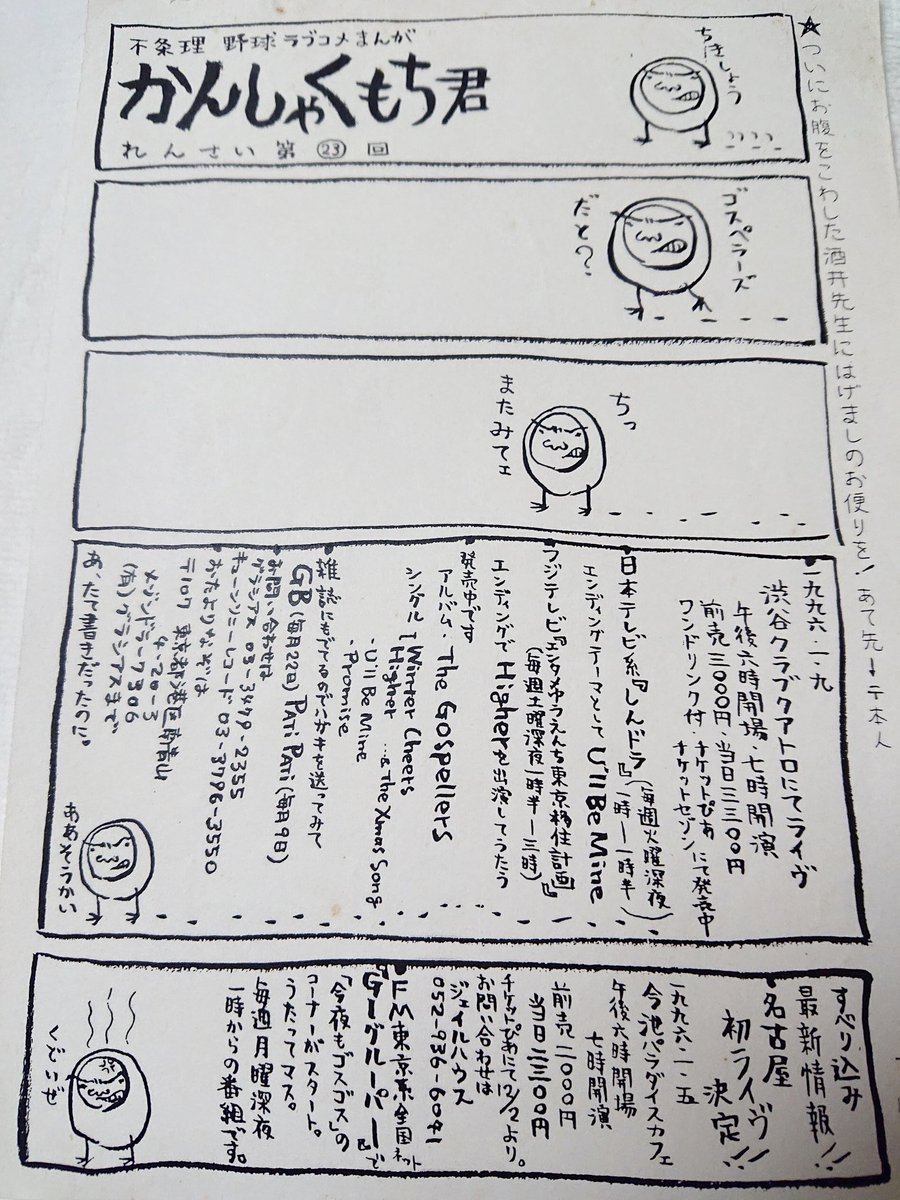 不条理 野球ラブコメまんが
かんしゃくもち君
れんさい第㉓回
ちきしょう
★ついにお腹をこわした酒井先生にはげましのお便りを! あて先→千本人
ゴスペラーズ
だと?
ちっ
またみてェ
・一九九六・一・九
渋谷クラブクアトロにてライヴ
午後六時開場・七時開演
前売三〇〇〇円・当日三三〇〇円
ワンドリンク付・チケットぴあ
チケットセゾン
にて発売中
・日本テレビ系『しんドラ』(毎週火曜深夜一時―一時半)
エンディングテーマとして U'll Be Mine
・フジテレビ『エンタメゆうえんち東京移住計画』
(毎週土曜深夜一時半―三時)
エンディングで Higherを出演してうたう
・発売中です
アルバム・The Gospellers
シングル Winter Cheers
Higher …&The Xmas Song
・U'll Be Mine
・Promise
・雑誌にもでてるのでハガキを送ってみて
GB (毎月22日) PATi PATi (毎月9日)
・お問い合わせは
グラシアス 03-3479-2355
キューンソニーレコード 03-3796-3550
・おたよりなぞは
〒107 東京都港区南青山
4-20-3
メゾンドラーク306
(有)グラシアスまで
あ、たて書きだったのに。
ああそうかい
すべり込み
最新情報!!
・名古屋
初ライヴ決定!!
一九九六・一・五
今池パラダイスカフェ
午後六時開場
七時開演
前売二〇〇〇円
当日二三〇〇円
チケットぴあにて12/2より。
お問い合わせは
ジェイルハウス
052-936-6041
・FM東京系全国ネット
『Gーグルーパー』で
「今夜もゴスゴス」の
コーナーがスタート。
うたってマス。
毎週月曜深夜
一時からの番組です。
くどいぜ